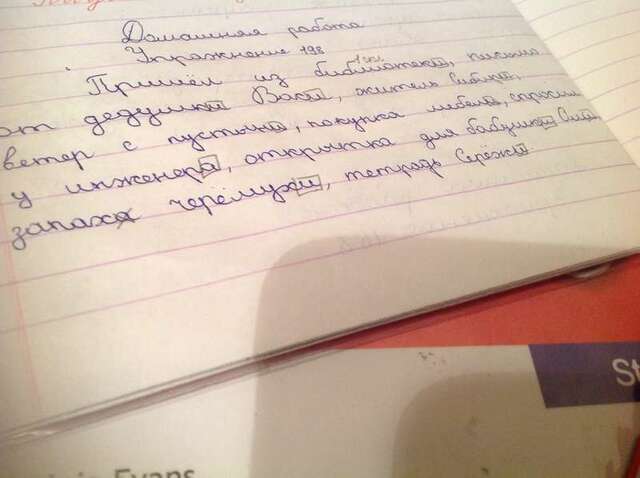 Домашняя работа
Упражнение 198
1 скл.
Пришёл из библиотеки, письмо
от дедушки Васи, житель Сибири,
ветер с пустыни, покупка мебели, спросили
у инженера, открытка для бабушки Оли,
запах черёмухи, тетрадь Серёжи
St
Evans